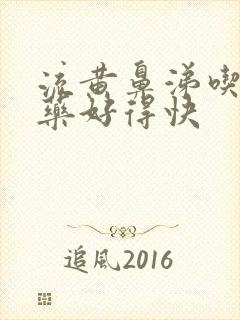 流黄鼻涕喫
藥好得快
追風2016